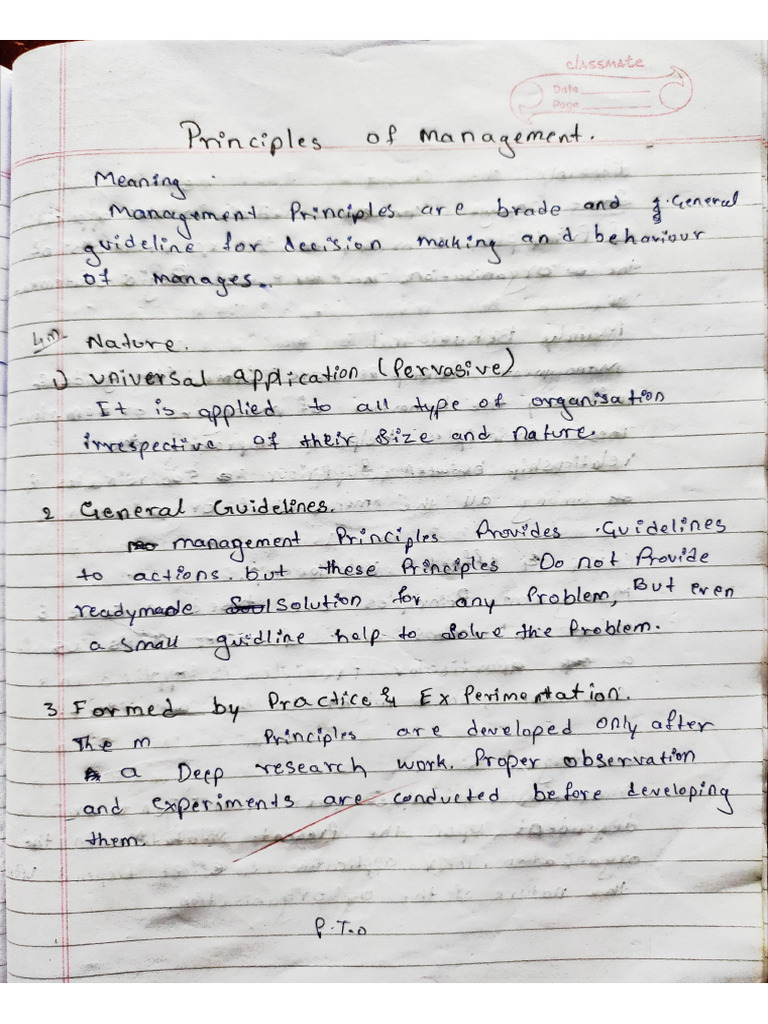 classmate
Date
Page
Principles of management.
Meaning :
Management Principles are brade and g. General
guideline for decision making and behaviour
of manages..
4m Nature.
1) universal application (Pervasive)
It is applied to all type of organisation
irrespective of their size and nature.
2 General Guidelines.
management Principles Provides Guidelines
to actions. but these Principles Do not Provide
readymade solution for any Problem, But even
a small guidline help to solve the Problem.
3. Formed by Practice & Experimentation.
The m Principles are developed only after
a Deep research work. Proper observation
and experiments are conducted before developing
them.
P.T.O